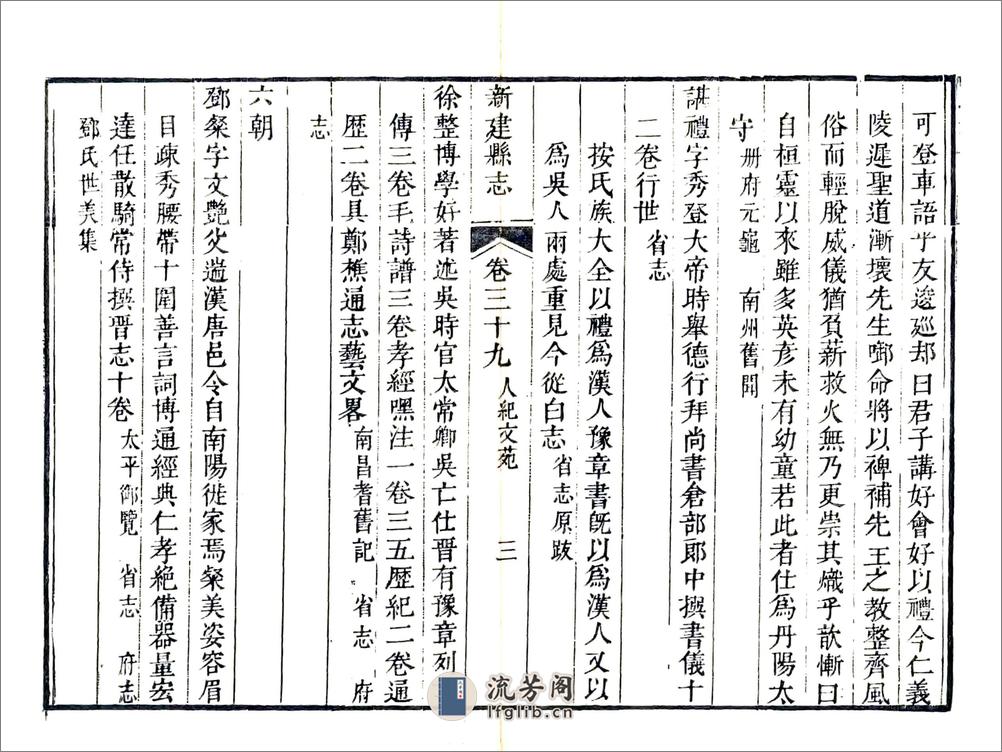 可登車語乎友逡巡却曰君子講好會好以禮今仁義
陵遲聖道漸壞先生啣命將以裨補先王之教整齊風
俗而輕脫威儀猶負薪救火無乃更崇其熾乎歆慚曰
自桓靈以來雖多英彥未有幼童若此者仕爲丹陽太
守 册府元龜 南州舊聞
諶禮字秀登大帝時舉德行拜尚書倉部郎中撰書儀十
二卷行世 省志
按氏族大全以禮爲漢人豫章書旣以爲漢人又以
爲吳人兩處重見今從白志 省志原跋
新建縣志 卷三十九 人紀文苑 三
徐整博學好著述吳時官太常卿吳亡仕晋有豫章列
傳三卷毛詩譜三卷孝經嘿注一卷三五歴紀二卷通
歴二卷具鄭樵通志藝文畧 南昌耆舊記 省志 府
志
六朝
鄧粲字文艶父遒漢唐邑令自南陽徙家焉粲美姿容眉
目疎秀腰帶十圍善言詞博通經典仁孝絶備器量宏
達任散騎常侍撰晋志十卷 太平御覽 省志 府志
鄧氏世美集
流芳阁
lfglib.cn